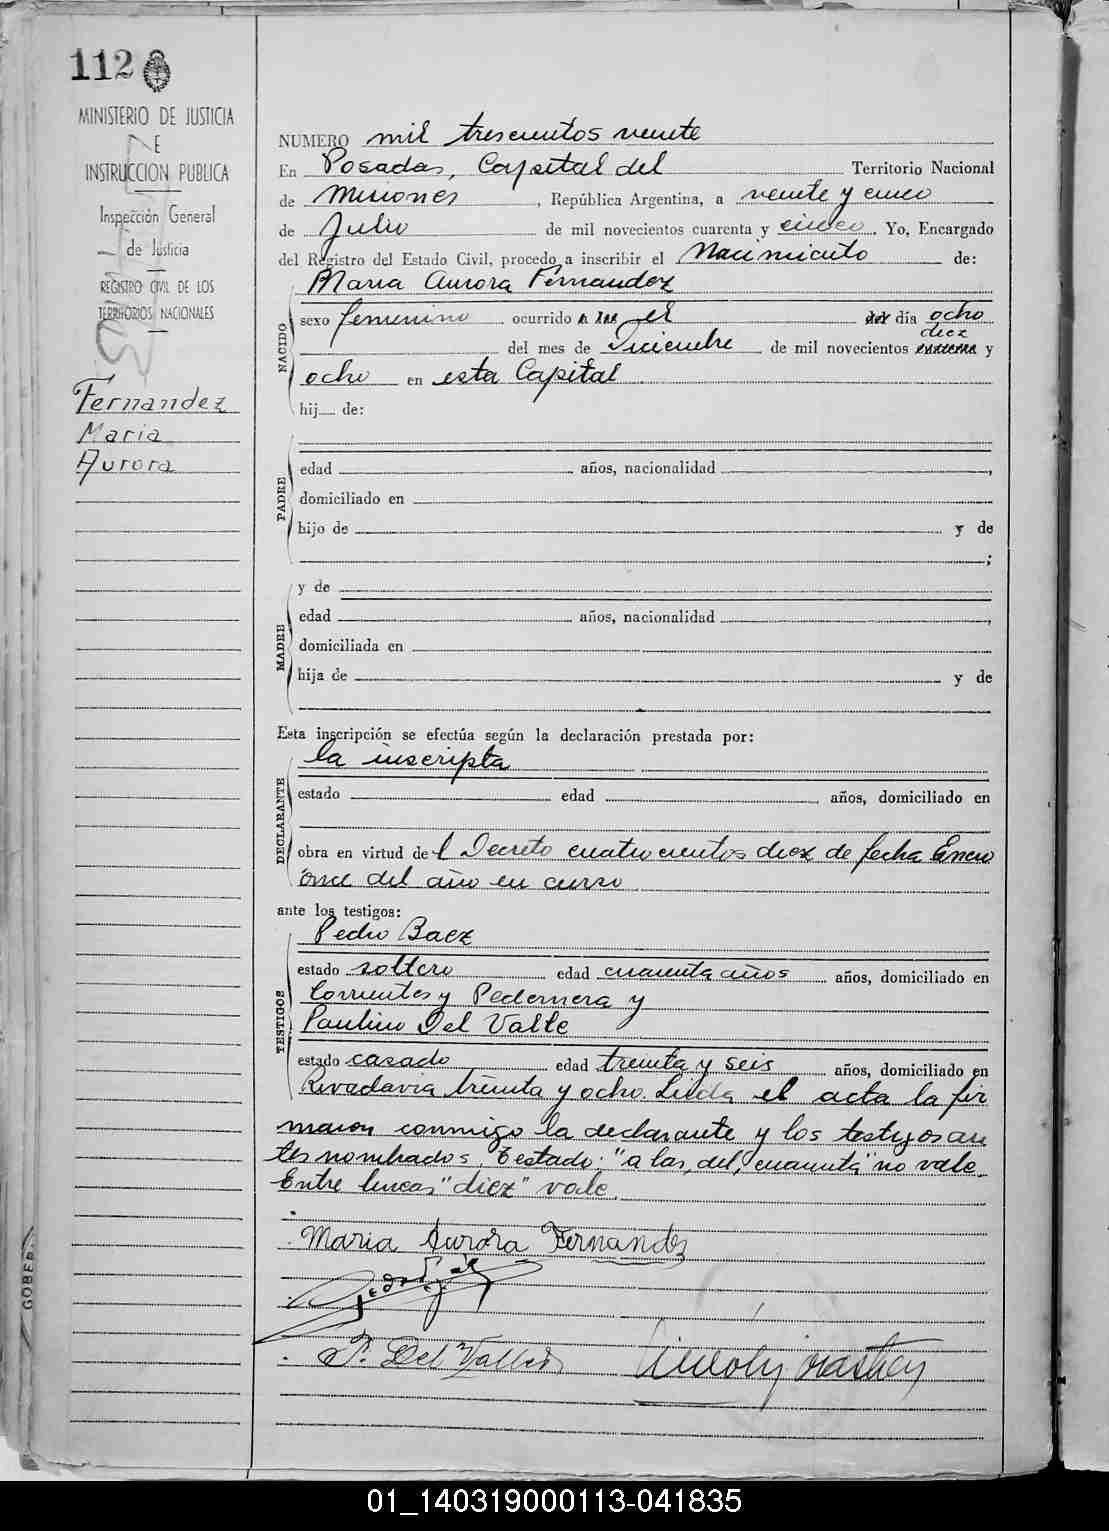 112
MINISTERIO DE JUSTICIA
E
INSTRUCCION PUBLICA
Inspección General
de Justicia
REGISTRO CIVIL DE LOS
TERRITORIOS NACIONALES
Fernandez
Maria
Aurora
NUMERO mil trescientos veinte
En Posadas, Capital del Territorio Nacional
de Misiones, República Argentina, a veinte y cinco
de Julio de mil novecientos cuarenta y cinco. Yo, Encargado
del Registro del Estado Civil, procedo a inscribir el Nacimiento de:
Maria Aurora Fernandez
NACIDO
sexo femenino ocurrido a las el del día ocho
diez
del mes de Diciembre de mil novecientos cuarenta y
ocho en esta Capital
hij de:
PADRE
edad años, nacionalidad ,
domiciliado en
hijo de y de
;
MADRE
y de
edad años, nacionalidad ,
domiciliada en
hija de y de
Esta inscripción se efectúa según la declaración prestada por:
la inscripta
DECLARANTE
estado edad años, domiciliado en
obra en virtud del Decreto cuatrocientos diez de fecha Enero
once del año en curso
ante los testigos:
Pedro Baez
TESTIGOS
estado soltero edad cuarenta años años, domiciliado en
Corrientes y Pedernera y
Paulino Del Valle
estado casado edad treinta y seis años, domiciliado en
Rivadavia treinta y ocho. Leida el acta la fir
maron conmigo la declarante y los testigos an
tes nombrados. Testado: "a las, del, cuarenta" no vale.
Entre lineas "diez" vale.
Maria Aurora Fernandez
P. Del Valle
GOBER
01_140319000113-041835